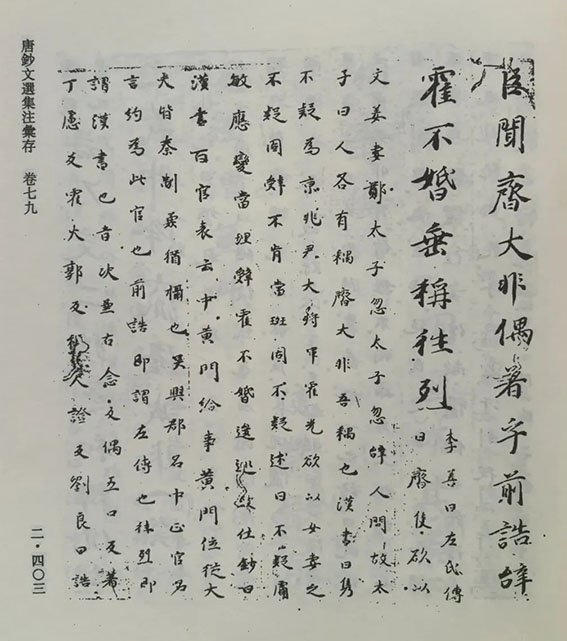 臣聞齊大非偶著乎前誥辞
霍不婚垂稱往烈李善曰左氏傳
曰齊侯欲以
文姜妻鄭太子忽太子忽辞人問故太
子曰人各有耦齊大非吾耦也漢書曰雋
不疑為京兆尹大將軍霍光欲以女妻之
不疑固辞不肯當班固不疑述曰不疑膚
敏應變當理辞霍不婚逡遁致仕鈔曰
漢書百官表云中黄門給事黄門位從大
夫皆秦制裴猶攝也吴興郡名中正官名
言約為此官也前誥即謂左傳也往烈即
謂漢書也音决並古念反偶五口反著
丁慮反霍火郭反證反劉良曰誥
唐鈔文選集注彙存 卷七九
二·四〇三